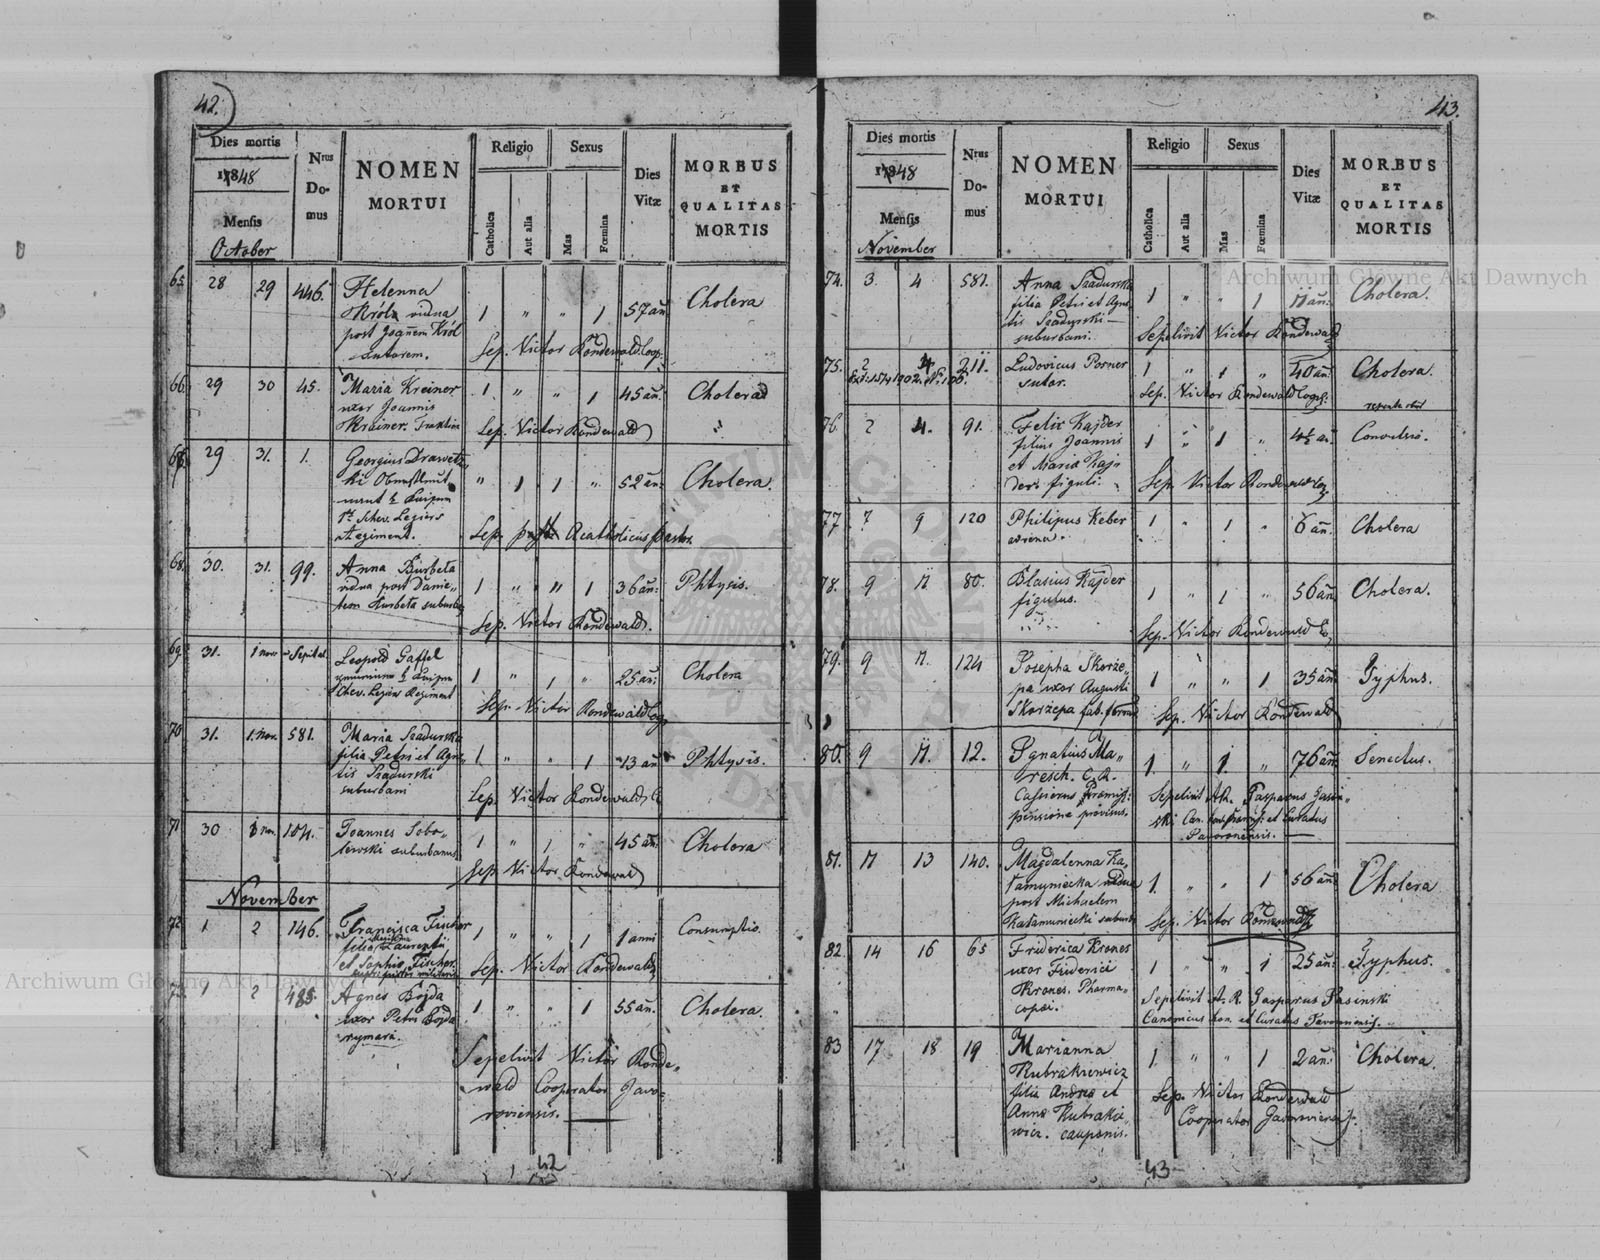 42.
Dies mortis
1848
Mensis
October
Nrus
Do-
mus
NOMEN
MORTUI
Religio
Catholica
Aut alia
Sexus
Mas
Fœmina
Dies
Vitæ
MORBUS
ET
QUALITAS
MORTIS
65 28 29 446. Helenna
Król vidua
post Joannem Król
sutorem.
1 " " 1 57 an Cholera
Sep. Victor Rondewald Coop.
66 29 30 45. Maria Kreiner
uxor Joannis
Krainer
1 " " 1 45 an. Cholera
Sep. Victor Rondewald
67. 29 31. 1. Georgius
" 1 1 " 52 an: Cholera.
Regiment.
Sep. Acatholicus pastor.
68. 30. 31. 99. Anna Burbeła
vidua post Danie-
lem suburb
1 " " 1 36 an: Phtysis.
Sep. Victor Rondewald.
69. 31. 1 nov Spital Leopold Gaffel
Chev. Legers Regiment
1 " 1 " 25 an: Cholera
Sep. Victor Rondewald Coop
70 31. 1. Nov. 581. Maria Szadurska
filia Petri et Agne-
tis Szadurski
suburbani
1 " " 1 13 an Phtysis.
Sep. Victor Rondewald
71 30 nov. 104. Joannes Sobo-
lewski suburbanus
1 " 1 " 45 an. Cholera
Sep. Victor Rondewald
November
72. 1 2 146. Francisca Fischer
filia Laurentii
et Sophia Fischer
1 " " 1 1 anni Consumptio.
Sep. Victor Rondewald
73. 1 2 485. Agnes Bojda
uxor Petri Bojda
rymarz.
1 " " 1 55 an. Cholera.
Sepelivit Victor Ronde-
wald Cooperator Javo-
roviensis.
42
43.
Dies mortis
1848
Mensis
November
Nrus
Do-
mus
NOMEN
MORTUI
Religio
Catholica
Aut alia
Sexus
Mas
Fœmina
Dies
Vitæ
MORBUS
ET
QUALITAS
MORTIS
74. 3. 4 581. Anna Szadurska
filia Petri et Agne-
tis Szadurski
suburbani.
1 " " 1 11 an: Cholera.
Sepelivit Victor Rondewald
75. 2 4. 211. Ludovicus Porner
sutor.
1 " 1 " 40 an. Cholera.
Sep. Victor Rondewald Coop:
76. 2 4. 91. Felix Kajder
filius Joannis
et Maria Kaj-
der. figuli.
1 " 1 " Convulsio.
Sep. Victor Rondewald
77 7 9 120 Philipus Keber
1 " 1 " 6 an. Cholera
78. 9 11 80. Blasius Kajder
figulus.
1 " 1 " 56 an. Cholera.
Sep. Victor Rondewald
79. 9 11. 124 Josepha Skorże-
pa uxor Augusti
Skorżepa fab.
1 " " 1 35 an. Typhus.
Sep. Victor Rondewald
80. 9 11. 12. Ignatius Ma-
resch. C. R.
Cassierus
pensione provisus.
1. " 1. " 76 an. Senectus.
Sepelivit A.R. Gasparus Jasin-
ski Can. et Curatus
Javoroviensis.
81. 11 13 140. Magdalenna Ka-
łamuniecka vidua
post Michaelem
Kałamuniecki suburb
1. " " 1 56 an: Cholera
Sep. Victor Rondewald
82. 14 16 65 Friderica Krones
uxor Friderici
Krones. Pharma-
copei.
1 " " 1 25 an: Typhus.
Sepelivit A. R. Gasparus Jasinski
Canonicus hon. et Curatus Javoroviensis.
83 17 18 19 Marianna
Kubrakiewicz
filia Andrea et
Anna Kubrakie
wicz. cauponis.
1 " " 1 2 an: Cholera.
Sep. Victor Rondewald
Cooperator Javoroviensis.
43
Archiwum Główne Akt Dawnych
Archiwum Główne Akt Dawnych